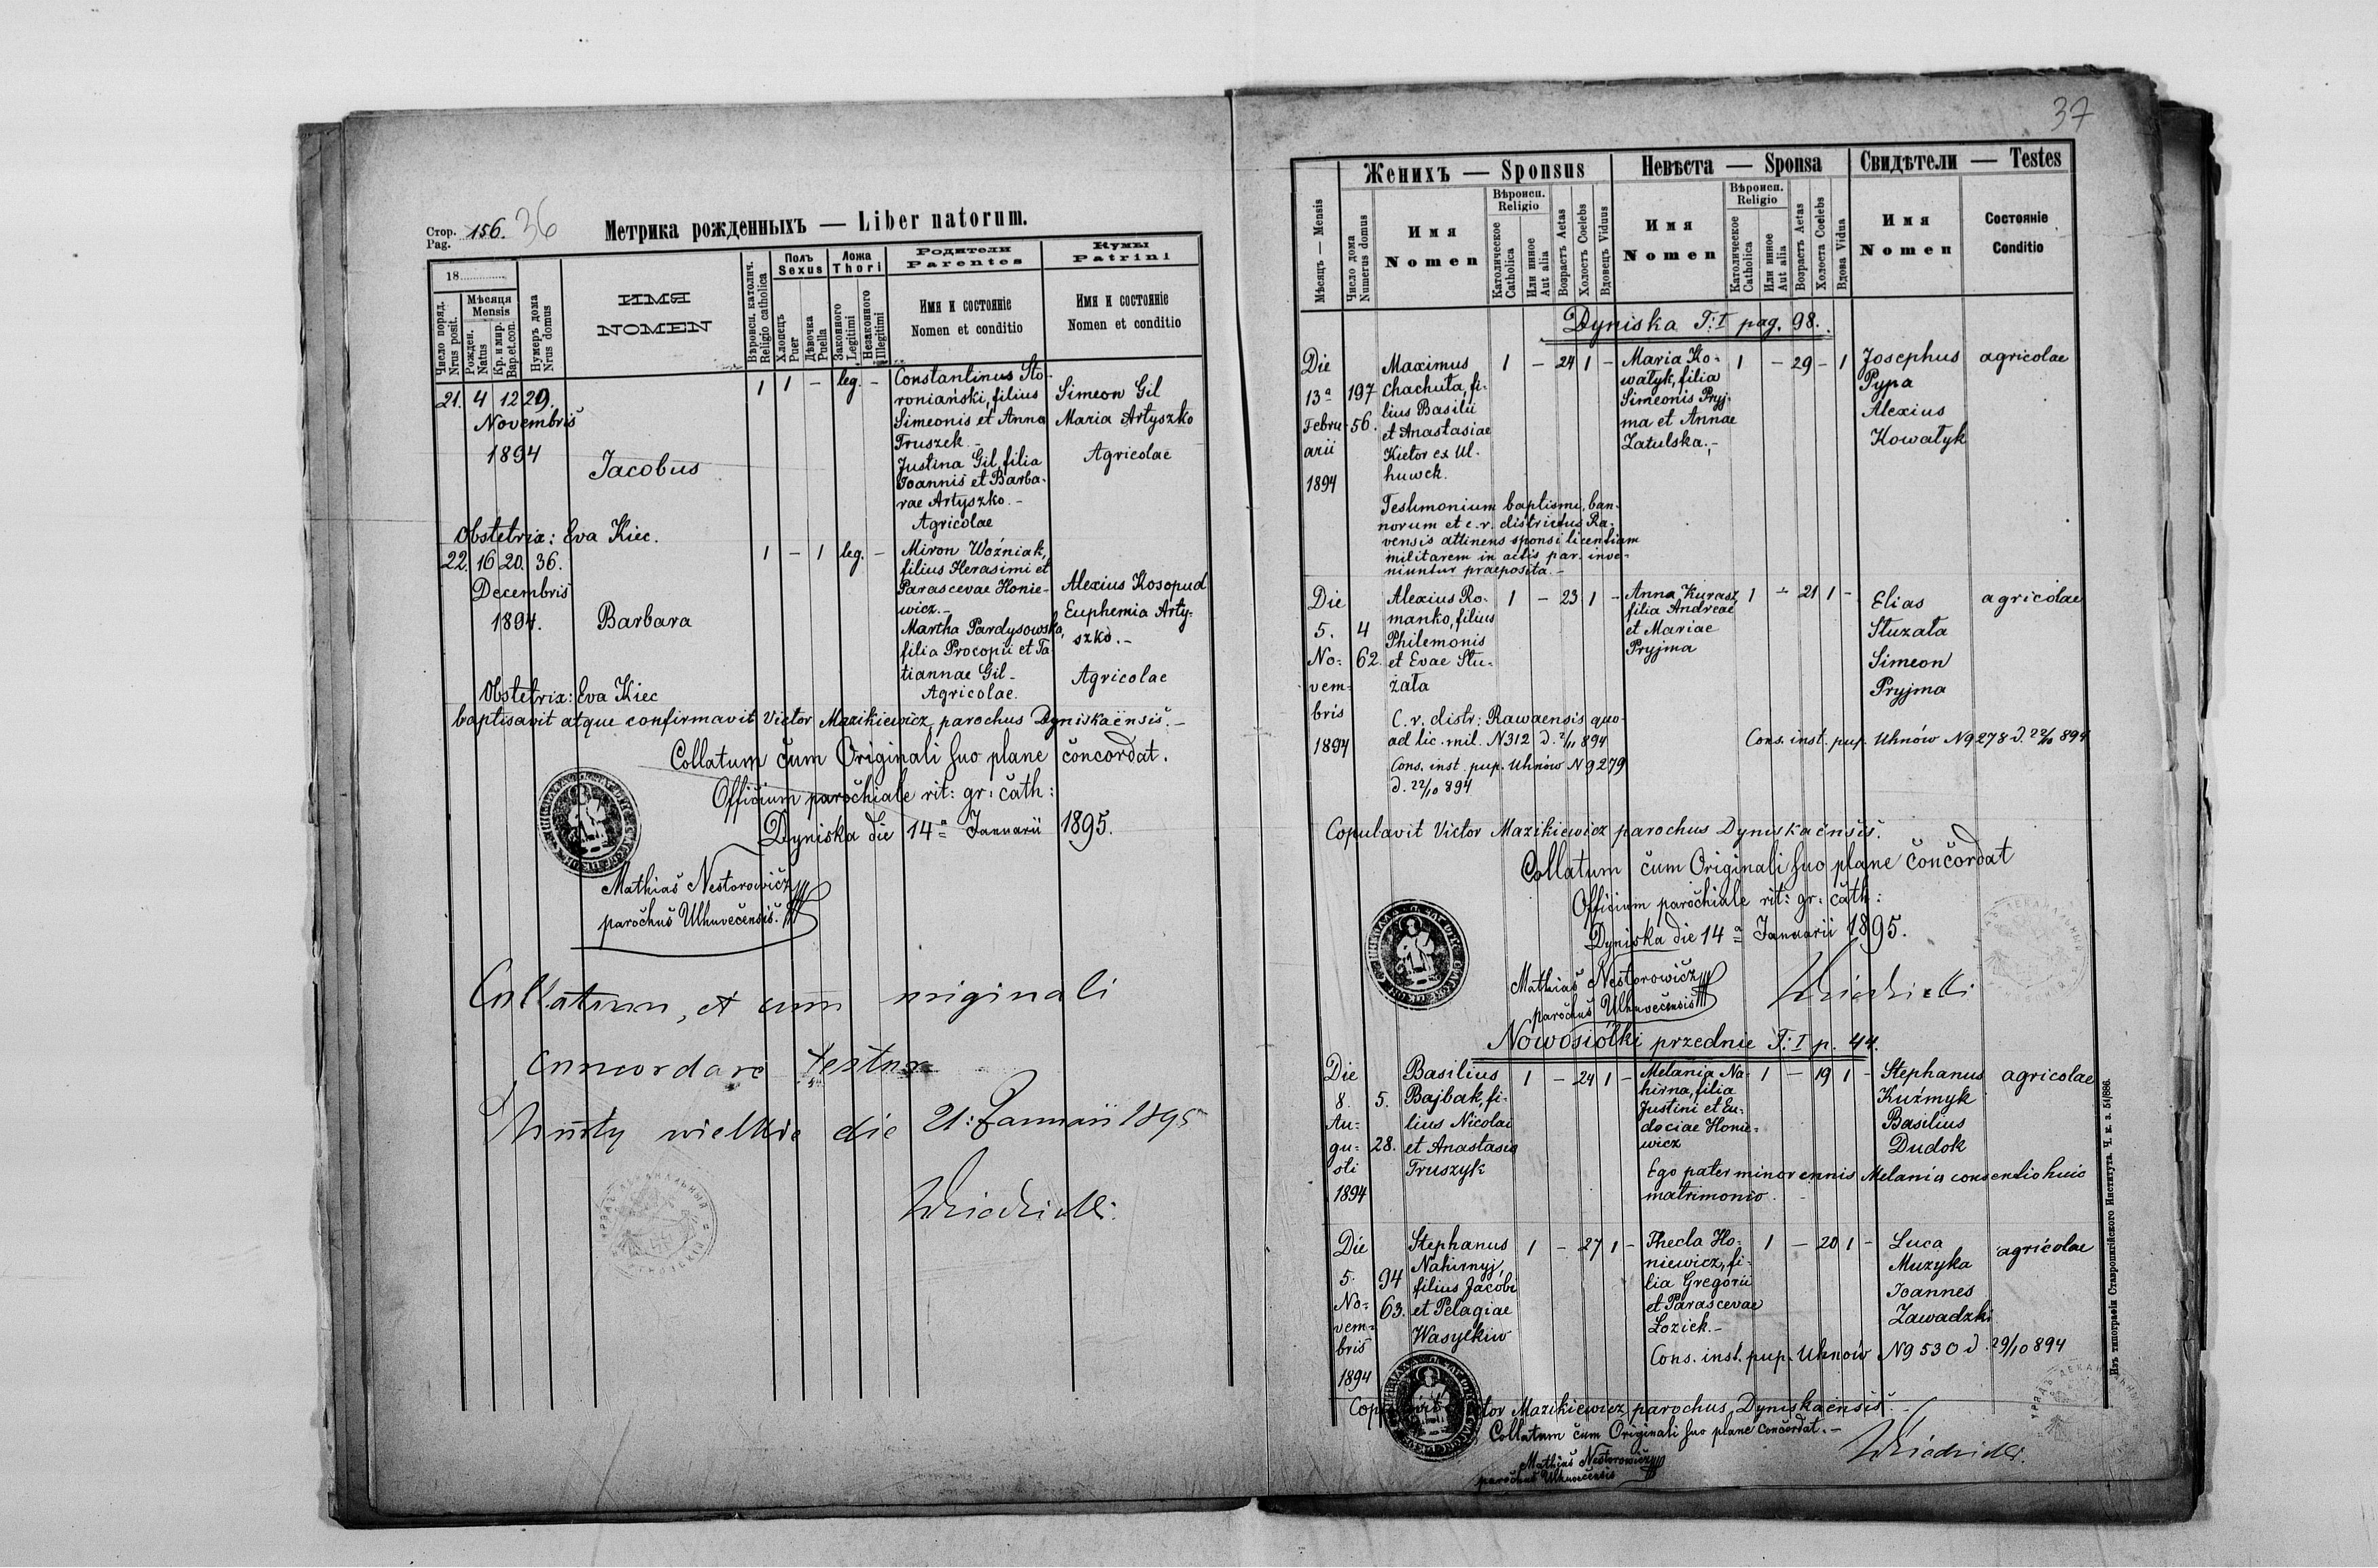 Стор. Pag. 156. 36
Метрика рожденныхъ — Liber natorum.
18
Число поряд. Nrus posit.
Мѣсяця Mensis
Рожден. Natus
Кр. и мир. Bap. et. con.
Нумеръ дома Nrus domus
ИМЯ
NOMEN
Вѣроисп. католич. Religio catholica
Полъ Sexus
Хлопецъ Puer
Дѣвочка Puella
Ложа Thori
Законного Legitimi
Незаконного Illegitimi
Родители
Parentes
Имя и состоянiе
Nomen et conditio
Кумы
Patrini
Имя и состоянiе
Nomen et conditio
21. 4 12 29.
Novembris
1894
Jacobus
1 1 – leg. –
Constantinus Sto-
roniański, filius
Simeonis et Anna
Truszek. –
Justina Gil, filia
Joannis et Barba-
rae Artyszko. –
Agricolae
Simeon Gil
Maria Artyszko
Agricolae
Obstetrix: Eva Kiec.
22. 16 20. 36.
Decembris
1894.
Barbara
1 – 1 leg. –
Miron Woźniak,
filius Herasimi et
Parascevae Honie-
wicz. –
Martha Pardysowska,
filia Procopii et Ta-
tiannae Gil –
Agricolae.
Alexius Kosopud
Euphemia Arty-
szko. –
Agricolae
Obstetrix: Eva Kiec
baptisavit atque confirmavit Victor Mazikiewicz, parochus Dyniskaënsis. –
Collatum cum Originali suo plane concordat.
Officium parochiale rit: gr: cath:
Dyniska die 14ª Januarii 1895.
Mathias Nestorowicz
parochus Ulhuvecensis.
Collatum, et cum originali
concordare testor
wielkie die 21: Januarii 1895
37
Мѣсяцъ — Mensis
Число дома Numerus domus
Женихъ — Sponsus
Имя
Nomen
Вѣроисп. Religio
Католическое Catholica
Или инное Aut alia
Возрастъ Aetas
Холостъ Coelebs
Вдовецъ Viduus
Невѣста — Sponsa
Имя
Nomen
Вѣроисп. Religio
Католическое Catholica
Или инное Aut alia
Возрастъ Aetas
Холоста Coelebs
Вдова Vidua
Свидѣтели — Testes
Имя
Nomen
Состоянiе
Conditio
Dyniska T: I pag. 98.
Die
13ª
Febru-
arii
1894
197
56.
Maximus
Chachuta, fi-
lius Basilii
et Anastasiae
Kietor ex Ul-
huwek.
1 – 24 1 –
Maria Ko-
watyk, filia
Simeonis Pryj-
ma et Annae
Zatulska. –
1 – 29 – 1
Josephus
Pypa
Alexius
Kowatyk
agricolae
Testimonium baptismi, ban-
norum et c. r. districtus Ra-
vensis attinens sponsi licentiam
militarem in actis par. inve-
niuntur praeposita. –
Die
5.
No-
vem-
bris
1894
4
62.
Alexius Ro-
manko, filius
Philemonis
et Evae Stu-
żała
1 – 23 1 –
Anna Kurasz,
filia Andreae
et Mariae
Pryjma
1 – 21 1 –
Elias
Stuzała
Simeon
Pryjma
agricolae
C. r. distr: Rawaensis quo-
ad lic. mil. N 312 d. 2/11 894
Cons. inst. pup. Uhnów N 9279
d. 22/10 894
Cons. inst. pup. Uhnów N 9278 d. 22/10 894
Copulavit Victor Mazikiewicz parochus Dyniskaënsis.
Collatum cum Originali suo plane concordat
Officium parochiale rit: gr: cath:
Dyniska die 14ª Januarii 1895.
Mathias Nestorowicz
parochus Ulhuvecensis
Nowosiółki przednie T: I p. 44.
Die
8.
Au-
gu-
sti
1894
5.
28.
Basilius
Bajbak, fi-
lius Nicolai
et Anastasia
Truszyk
1 – 24 1 –
Melania Na-
hirna, filia
Justini et Eu-
dociae Honie-
wicz
1 – 19 1 –
Stephanus
Kuźmyk
Basilius
Dudok
agricolae
Ego pater minorennis Melania consentio huic
matrimonio.
Die
5.
No-
vem-
bris
1894
94
63.
Stephanus
Nahirnyj,
filius Jacobi
et Pelagiae
Wasylkiw
1 – 27 1 –
Thecla Ho-
niewicz, fi-
lia Gregorii
et Parascevae
Łoziek. –
1 – 20 1 –
Luca
Muzyka
Joannes
Zawadzki
agricolae
Cons. inst. pup. Uhnów N 9530 d. 29/10 894
Mazikiewicz parochus Dyniskaënsis. –
Collatum cum Originali suo plane concordat. –
Mathias Nestorowicz
parochus Ulhuvecensis
Изъ типографiи Ставропигiйского Института. Ч. к. з. 51/886.